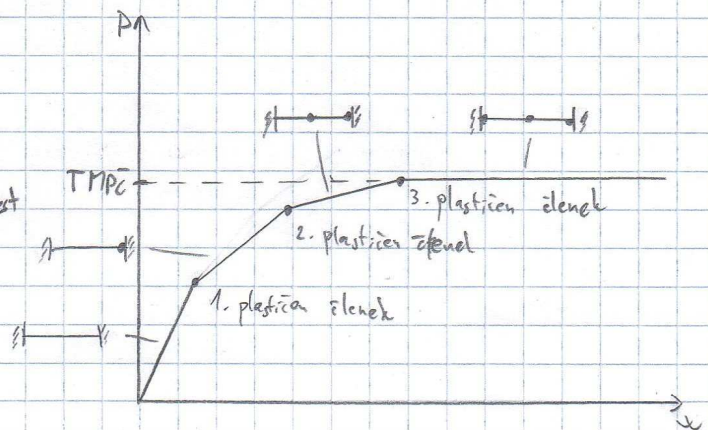 P
TMPČ
3. plastičen členek
2. plastičen členek
1. plastičen členek